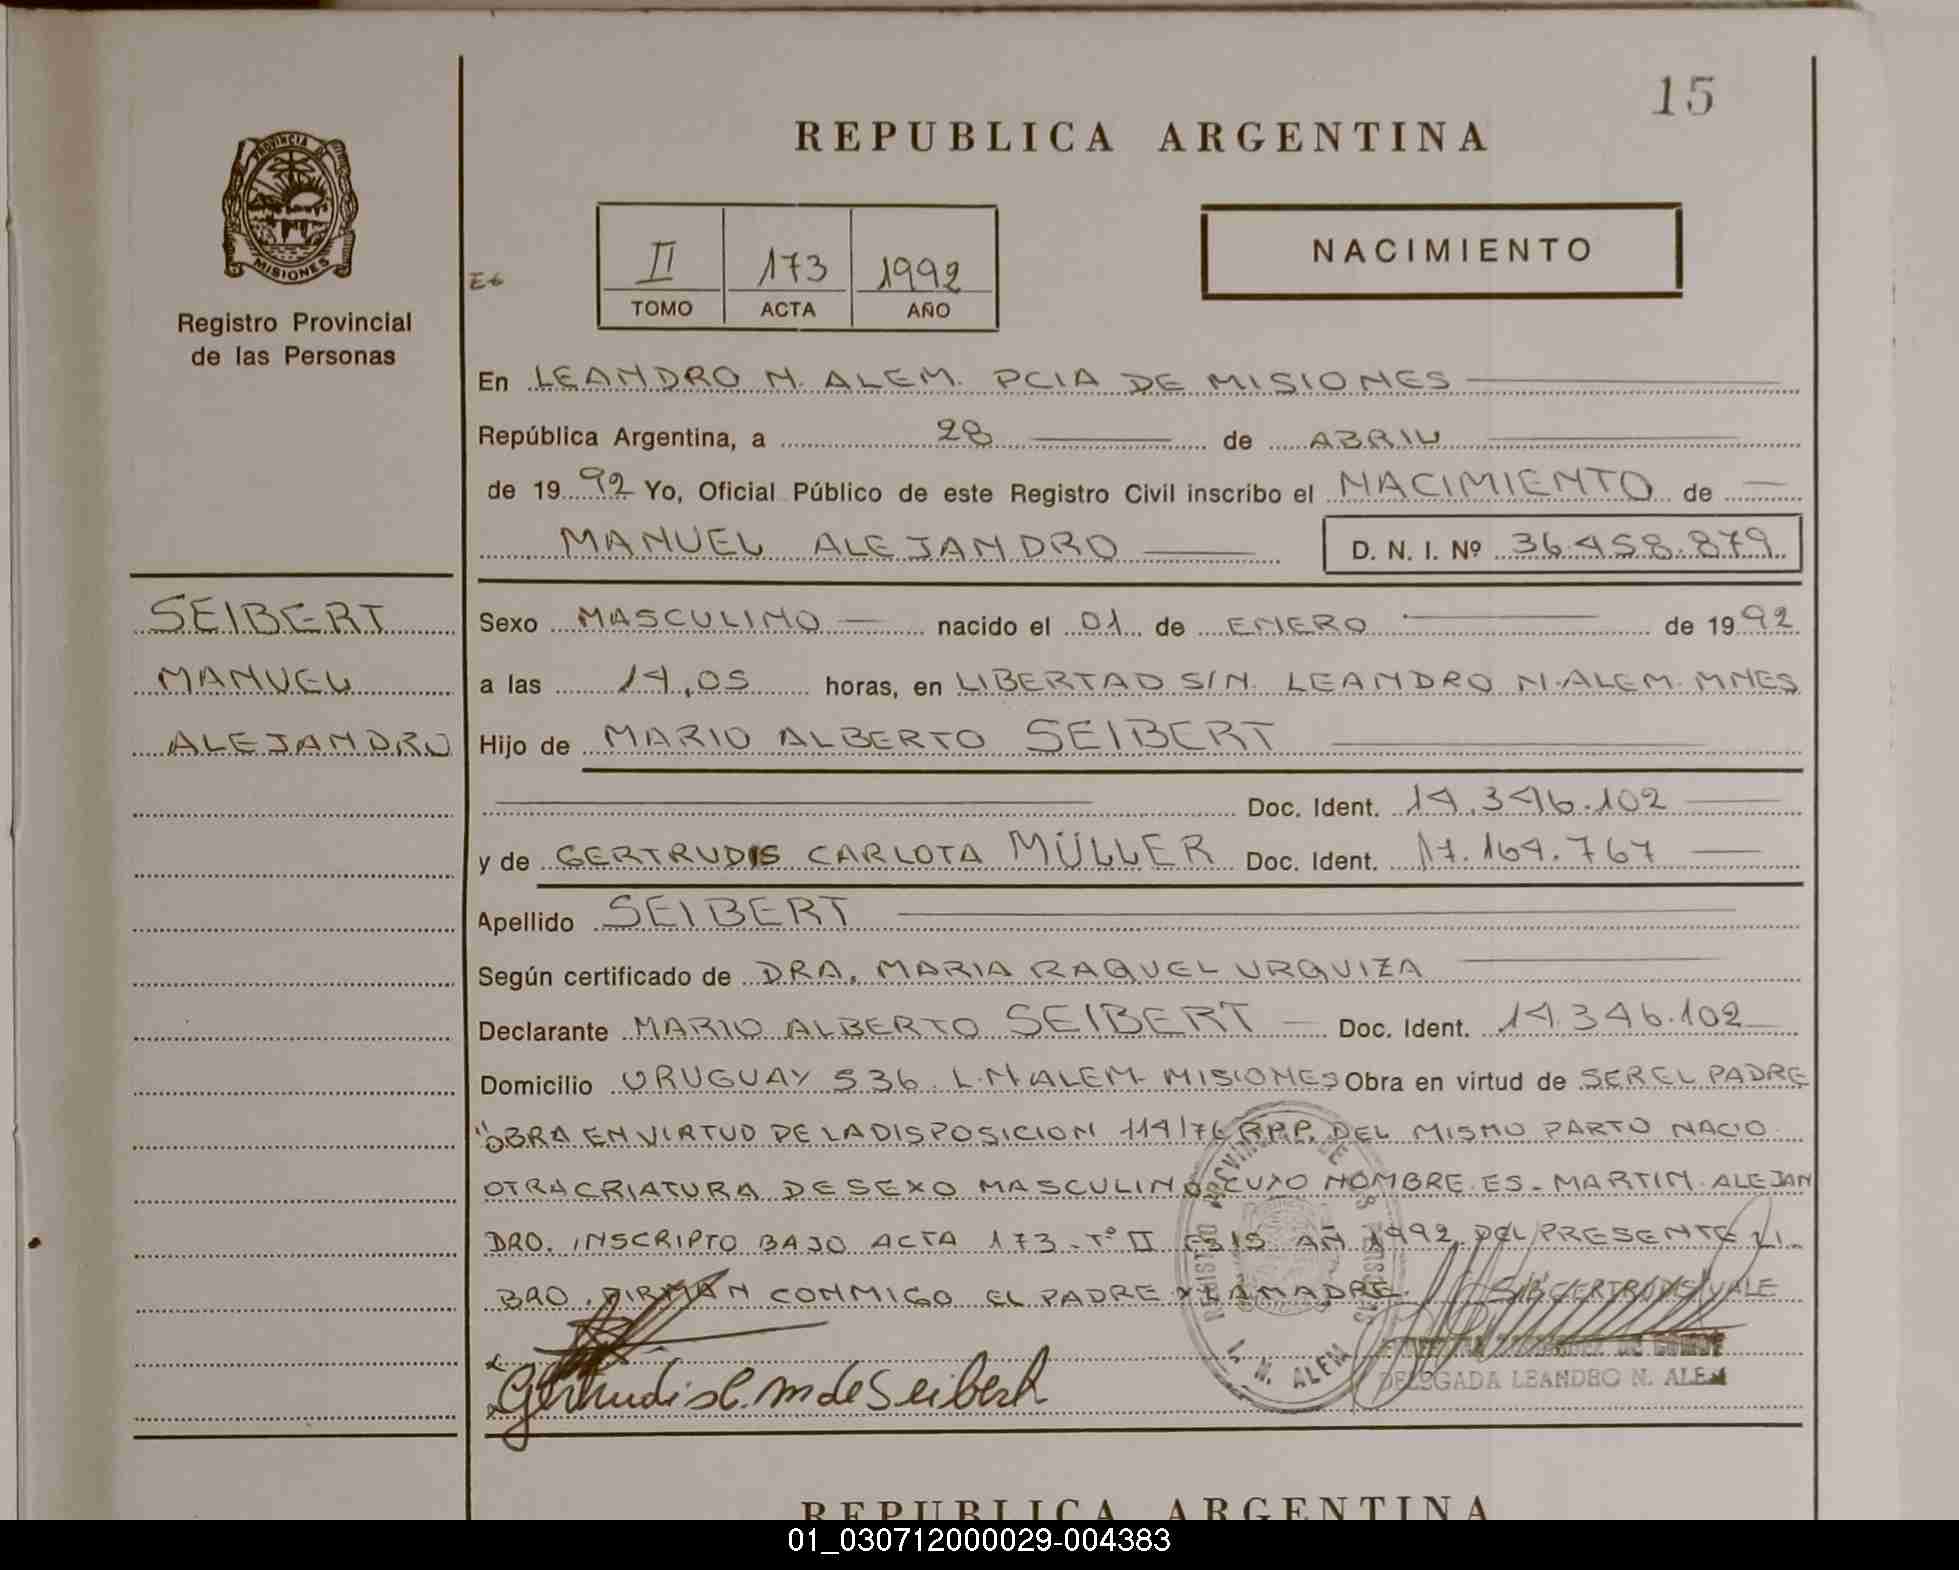 15
REPUBLICA ARGENTINA
PROVINCIA DE
MISIONES
Registro Provincial
de las Personas
II 173 1992
TOMO ACTA AÑO
NACIMIENTO
En LEANDRO N. ALEM. PCIA DE MISIONES
República Argentina, a 28 de ABRIL
de 1992 Yo, Oficial Público de este Registro Civil inscribo el NACIMIENTO de
MANUEL ALEJANDRO D. N. I. Nº 36.458.879
SEIBERT
MANUEL
ALEJANDRO
Sexo MASCULINO nacido el 01 de ENERO de 1992
a las 14,05 horas, en LIBERTAD S/N. LEANDRO N. ALEM. MNES
Hijo de MARIO ALBERTO SEIBERT
Doc. Ident. 14.346.102
y de GERTRUDIS CARLOTA MÜLLER Doc. Ident. 17.164.767
Apellido SEIBERT
Según certificado de DRA. MARIA RAQUEL URQUIZA
Declarante MARIO ALBERTO SEIBERT Doc. Ident. 14.346.102
Domicilio URUGUAY 536. L.N ALEM. MISIONES Obra en virtud de SER EL PADRE
"OBRA EN VIRTUD DE LA DISPOSICION 114/76 R.P.P. DEL MISMO PARTO NACIO
OTRA CRIATURA DE SEXO MASCULINO CUYO NOMBRE ES - MARTIN ALEJAN
DRO. INSCRIPTO BAJO ACTA 173 - Tº II Fº 15 AÑ 1992. DEL PRESENTE LI
BRO. FIRMAN CONMIGO EL PADRE Y LA MADRE. VALE
Gertrudis C. M de Seibert
L. N. ALEM
DELEGADA LEANDRO N. ALEM
REPUBLICA ARGENTINA
01_030712000029-004383